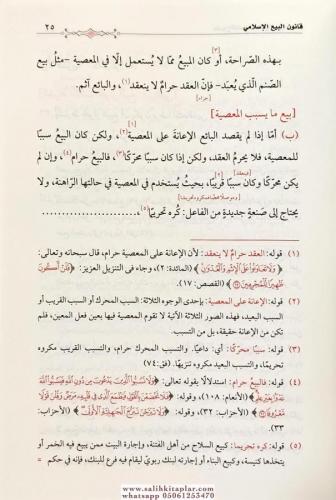 قانون البيع الإسلامي ٢٥
بهذه الصّراحة، أو كان المبيعُ ممّا لا يُستعمل إلّا في المعصية -مثلُ بيع
الصّنم الّذي يُعبَد- فإنّ العقد حرامٌ لا ينعقد(١)، والبائع آثم.
[بيع ما يسبب المعصية]
(ب) أمّا إذا لم يقصد البائعُ الإعانةَ على المعصية(٢)، ولكن كان البيعُ سببًا
للمعصية، فلا يحرمُ العقد، ولكن إذا كان سببًا محرّكًا(٣)، فالبيعُ حرام(٤)، وإن لم
يكن محرّكًا وكان سببًا قريبًا، بحيثُ يُستخدم في المعصية في حالتها الرّاهنة، ولا
يحتاج إلى صَنعةٍ جديدةٍ من الفاعل: كُره تحريمًا(٥)،
(١) قوله: العقد حرامٌ لا ينعقد: لأن الإعانة على المعصية حرام، قال سبحانه وتعالى:
﴿وَلَا تَعَاوَنُوا عَلَى الْإِثْمِ وَالْعُدْوَانِ﴾ (المائدة: ٢)، وجاء في التنزيل العزيز: ﴿فَلَنْ أَكُونَ
ظَهِيرًا لِلْمُجْرِمِينَ﴾ (القصص: ١٧).
(٢) قوله: الإعانة على المعصية: بإحدى الوجوه الثلاثة: السبب المحرك أو السبب القريب أو
السبب البعيد، فهذه الصور الثلاثة الآتية لا تقوم المعصية فيها بعين فعل المعين، فلم
تكن من الإعانة حقيقة، بل من التسبب.
(٣) قوله: سببًا محرّكًا: أي: داعيًا. والتسبب المحرك حرام، والتسبب القريب مكروه
تحريمًا، والتسبب البعيد مكروه تنزيهًا. (فق: ٧٤)
(٤) قوله: فالبيع حرام: استدلالًا بقوله تعالى: ﴿وَلَا تَسُبُّوا الَّذِينَ يَدْعُونَ مِنْ دُونِ اللَّهِ فَيَسُبُّوا اللَّهَ
عَدْوًا بِغَيْرِ عِلْمٍ﴾ (الأنعام: ١٠٨)، وقوله: ﴿فَلَا تَخْضَعْنَ بِالْقَوْلِ فَيَطْمَعَ الَّذِي فِي قَلْبِهِ مَرَضٌ وَقُلْنَ قَوْلًا
مَعْرُوفًا﴾ (الأحزاب: ٣٢)، وقوله: ﴿وَلَا تَبَرَّجْنَ تَبَرُّجَ الْجَاهِلِيَّةِ الْأُولَى﴾ (الأحزاب:
٣٣).
(٥) قوله: كره تحريمًا: كبيع السلاح من أهل الفتنة، وإجارة البيت ممن يبيع فيه الخمر أو
يتخذها كنيسة، وكبيع البناء أو إجارته لبنك ربوي ليقام فيه فرع للبنك، فإنه في حكم =
www.salihkitaplar.com
whatsapp 05061253470